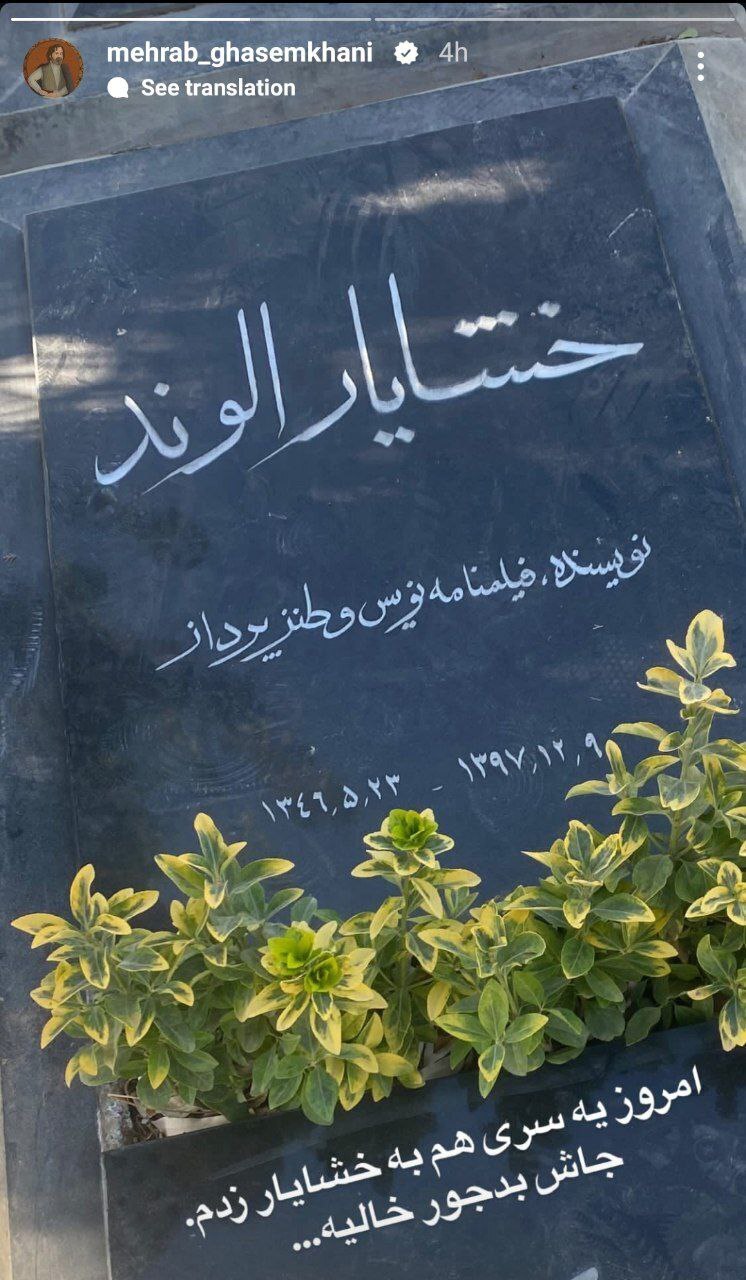 mehrab_ghasemkhani 4h
See translation
خشایار الوند
نویسنده، فیلمنامه نویس و طنزپرداز
۱۳۴۶,۵,۲۳ - ۱۳۹۷,۱۲,۹
امروز یه سری هم به خشایار زدم.
جاش بدجور خالیه...